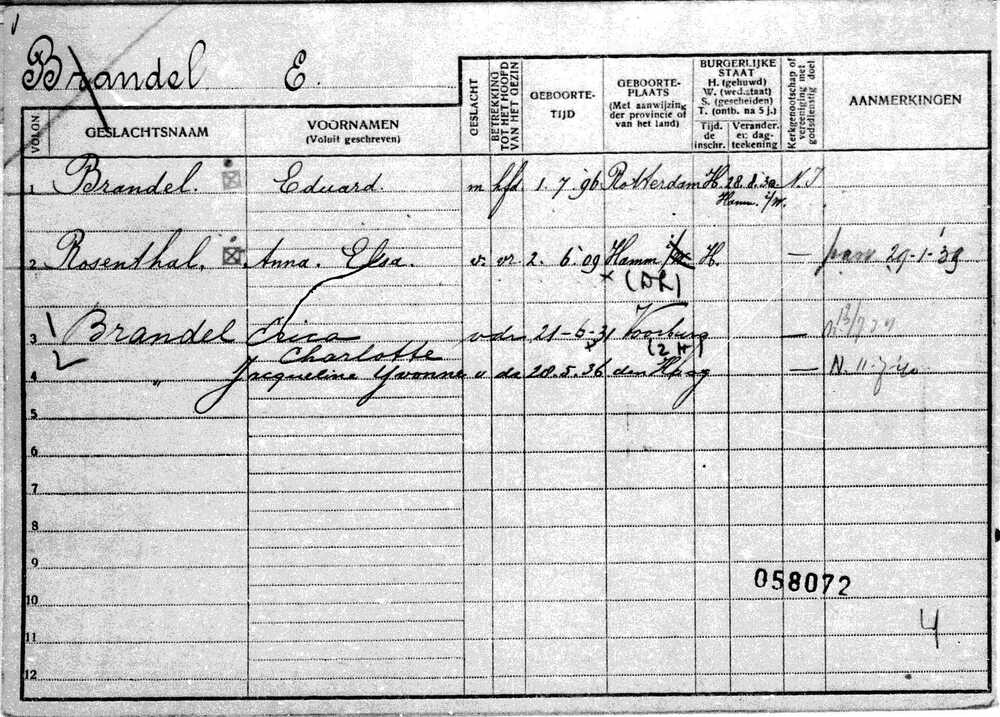 Brandel E.
VOLGN.
GESLACHTSNAAM
VOORNAMEN
(Voluit geschreven)
GESLACHT
BETREKKING TOT HET HOOFD VAN HET GEZIN
GEBOORTE-
TIJD
GEBOORTE-
PLAATS
(Met aanwijzing
der provincie of
van het land)
BURGERLIJKE
STAAT
H. (gehuwd)
W. (wed.staat)
S. (gescheiden)
T. (ontb. na 5 j.)
Tijd.
de
inschr.
Verander.
en dag-
teekening
Kerkgenootschap of
vereeniging met
godsdienstig doel
AANMERKINGEN
1 Brandel. Eduard. m hfd. 1. 7. 96 Rotterdam H. 28.8.30 N.I
Hamm. i/W.
2 Rosenthal. Anna. Elsa. v. vr. 2. 6. 09 Hamm i/W H. — pan 29-1-39
x (DL)
3 Brandel Erica v dr 21-6-31 Voorburg —
Charlotte x (ZH)
4 " Jacqueline Yvonne v da 28.5.36 den Haag — N.
5
6
7
8
9
10
11
12
058072
4